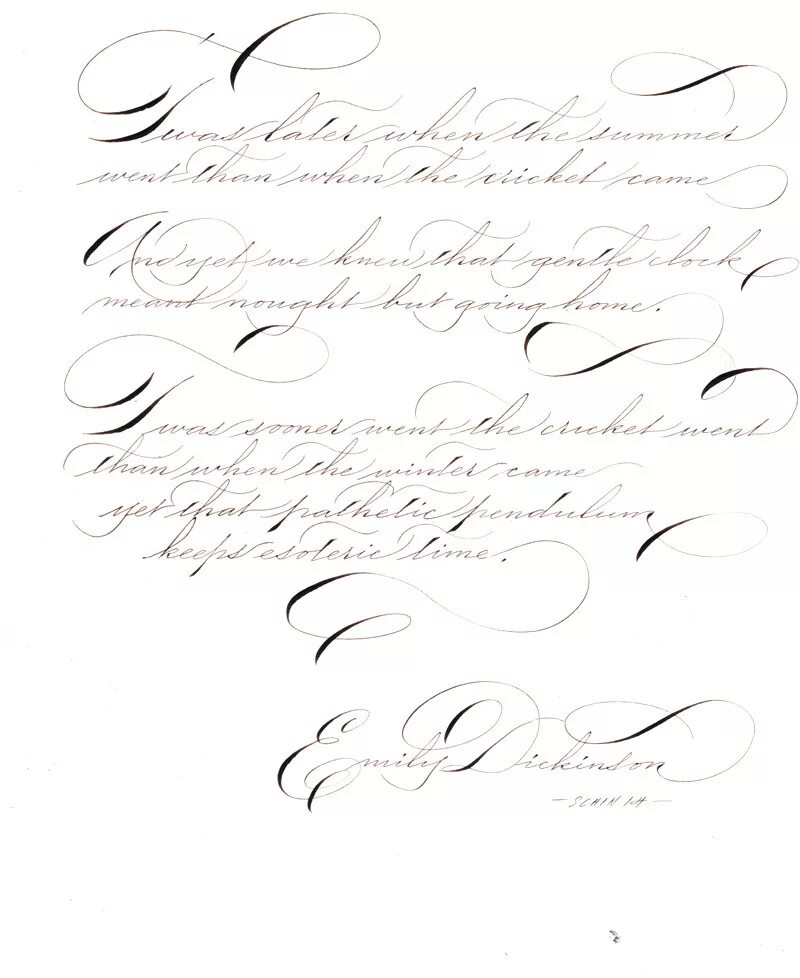 Twas later when the summer
went than when the cricket came
And yet we knew that gentle clock
meant nought but going home.
Twas sooner went the cricket went
than when the winter came
yet that pathetic pendulum
keeps esoteric time.
Emily Dickinson